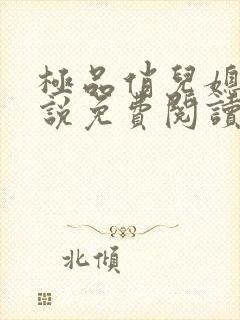 極品俏兒媳
說免費閱讀
北傾